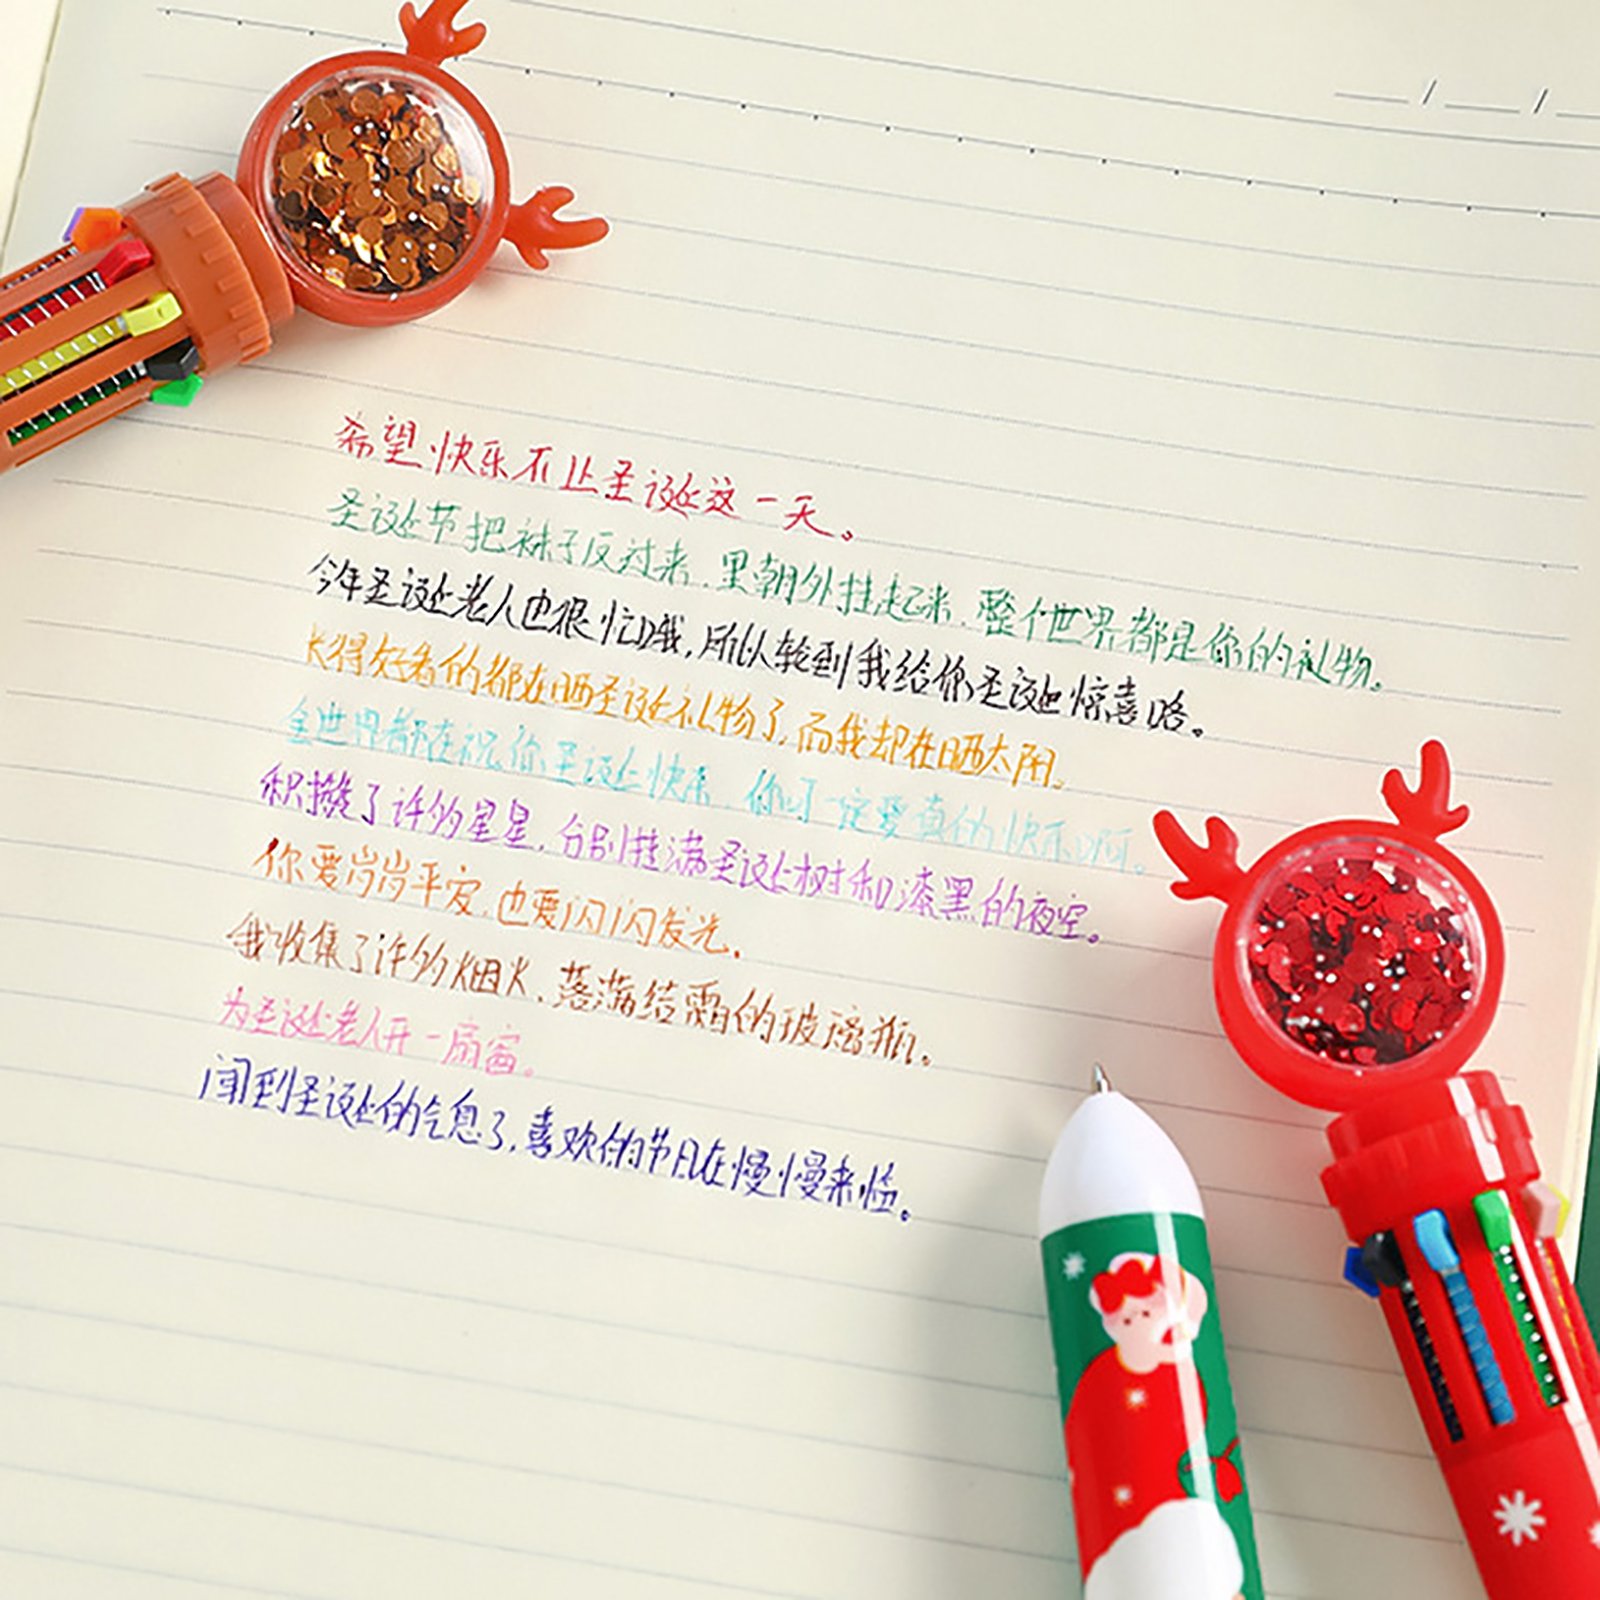 希望快乐不止圣诞这一天。
圣诞节把袜子反过来，里朝外挂起来，整个世界都是你的礼物。
今年圣诞老人也很忙哦，所以轮到我给你圣诞惊喜咯。
长得好看的都在晒圣诞礼物了，而我却在晒太阳。
全世界都在祝你圣诞快乐，你可一定要真的快乐啊。
积攒了许多星星，分别挂满圣诞树和漆黑的夜空。
你要岁岁平安，也要闪闪发光。
我收集了许多烟火，落满结霜的玻璃瓶。
为圣诞老人开一扇窗。
闻到圣诞的气息了，喜欢的节日在慢慢来临。